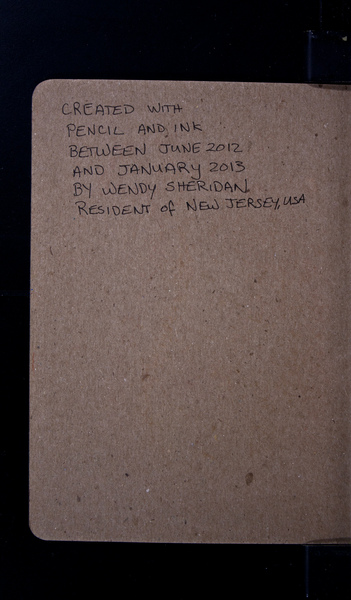 CREATED WITH
PENCIL AND INK
BETWEEN JUNE 2012
AND JANUARY 2013
BY WENDY SHERIDAN
RESIDENT of NEW JERSEY, USA